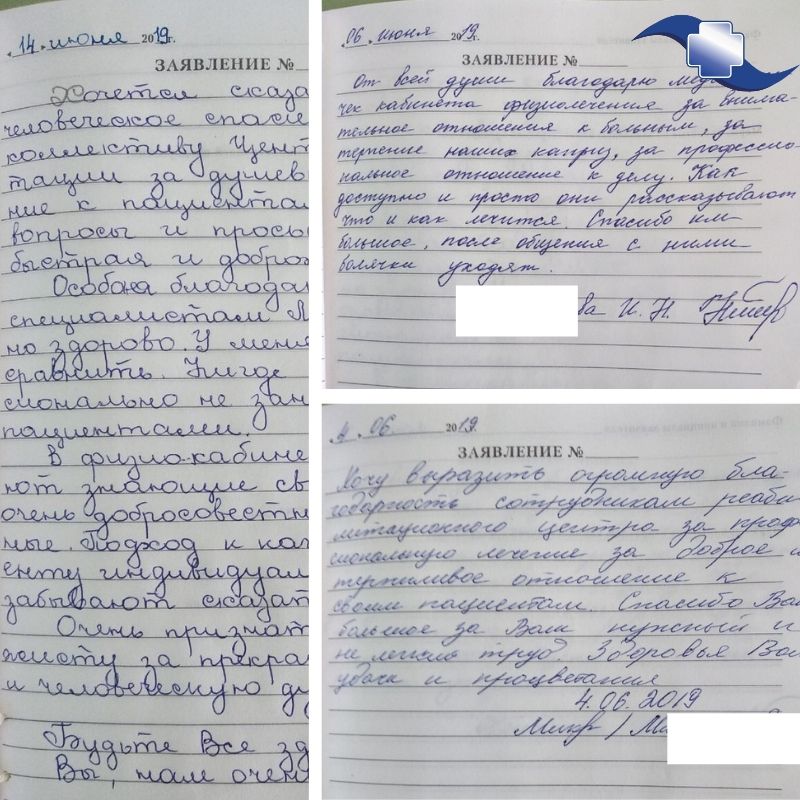 14. июня 2019г.
ЗАЯВЛЕНИЕ №
Хочется сказа
человеческое спаси
коллективу Цент
тации за душев
ние к пациента
вопросы и прось
быстрая и добро
Особая благода
специалистам Л
но здорово. У меня
сравнить. Нигде
сионально не зан
пациентами.
В физио-кабине
ют знающие св
очень добросовестн
ные. Подход к ка
енту индивидуал
забывают сказат
Очень признат
жисту за прекра
и человеческую ду
Будьте Все зд
Вы, нам очен
06. июня 2019г.
ЗАЯВЛЕНИЕ №
От всей души благодарю мед
чек кабинета физиолечения за внима-
тельное отношения к больным, за
терпение наших каприз, за профессио-
нальное отношение к делу. Как
доступно и просто они рассказывают
что и как лечится. Спасибо им
большое, после общения с ними
болячки уходят.
ва И. Н.
4. 06. 2019
ЗАЯВЛЕНИЕ №
Хочу выразить огромную бла-
годарность сотрудникам реаби
литационного центра за проф
сиональную лечение за доброе и
терпиливое отношение к
своим пациентам. Спасибо Вам
большое за Ваш нужный и
не легкий труд. Здоровья Вам
удачи и процветания
4.06.2019